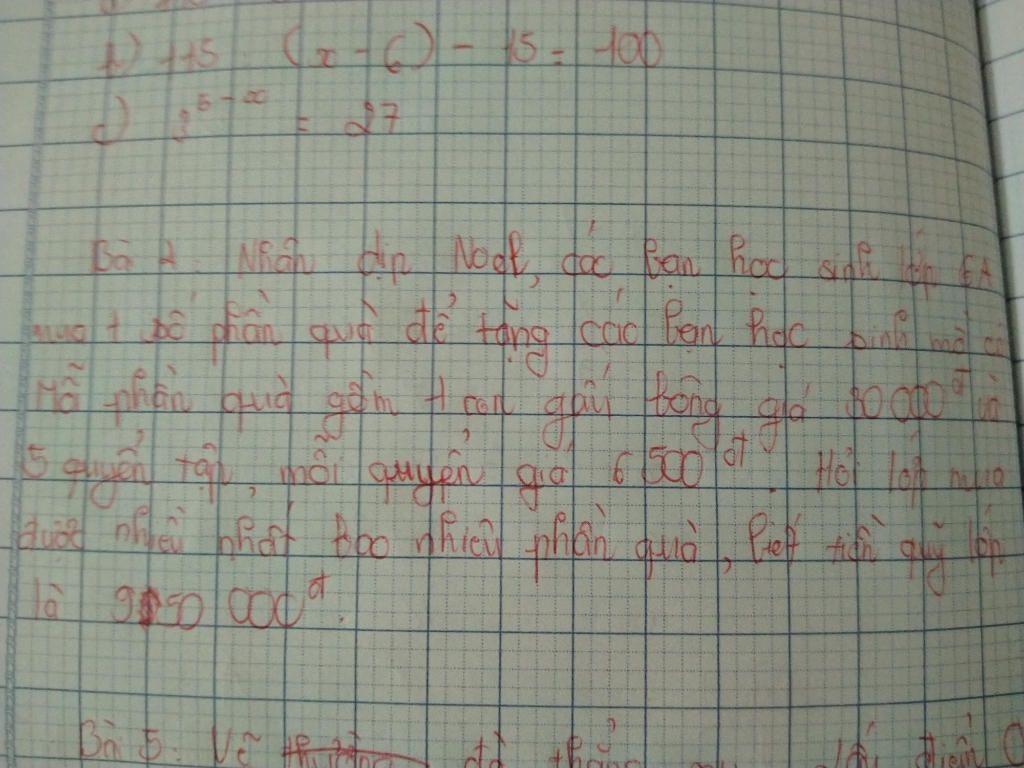 b) 115 (x - 6) - 15 = 100
c) 3^5-x = 27
Bài 4. Nhân dịp Noel, các bạn học sinh lớp 6A
mua 1 số phần quà để tặng các bạn học sinh mồ
Mỗ phần quà gồm 1 con gấu bông giá 80 000đ và
5 quyển tập, mỗi quyển giá 6 500đ. Hỏi lớp mua
được nhiều nhất bao nhiêu phần quà, biết tiền quỹ lớp
là 000đ.
Bài 5: Vẽ điểm O